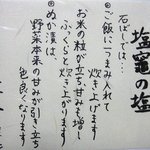 塩竈の塩
石ばしでは…
◎ご飯に一つまみ入れて
炊き上げます
お米の粒が立ち甘みも増し
ふっくらと炊き上がります
◎ぬか漬は、
野菜本来の甘みが引き立ち
色良くなります